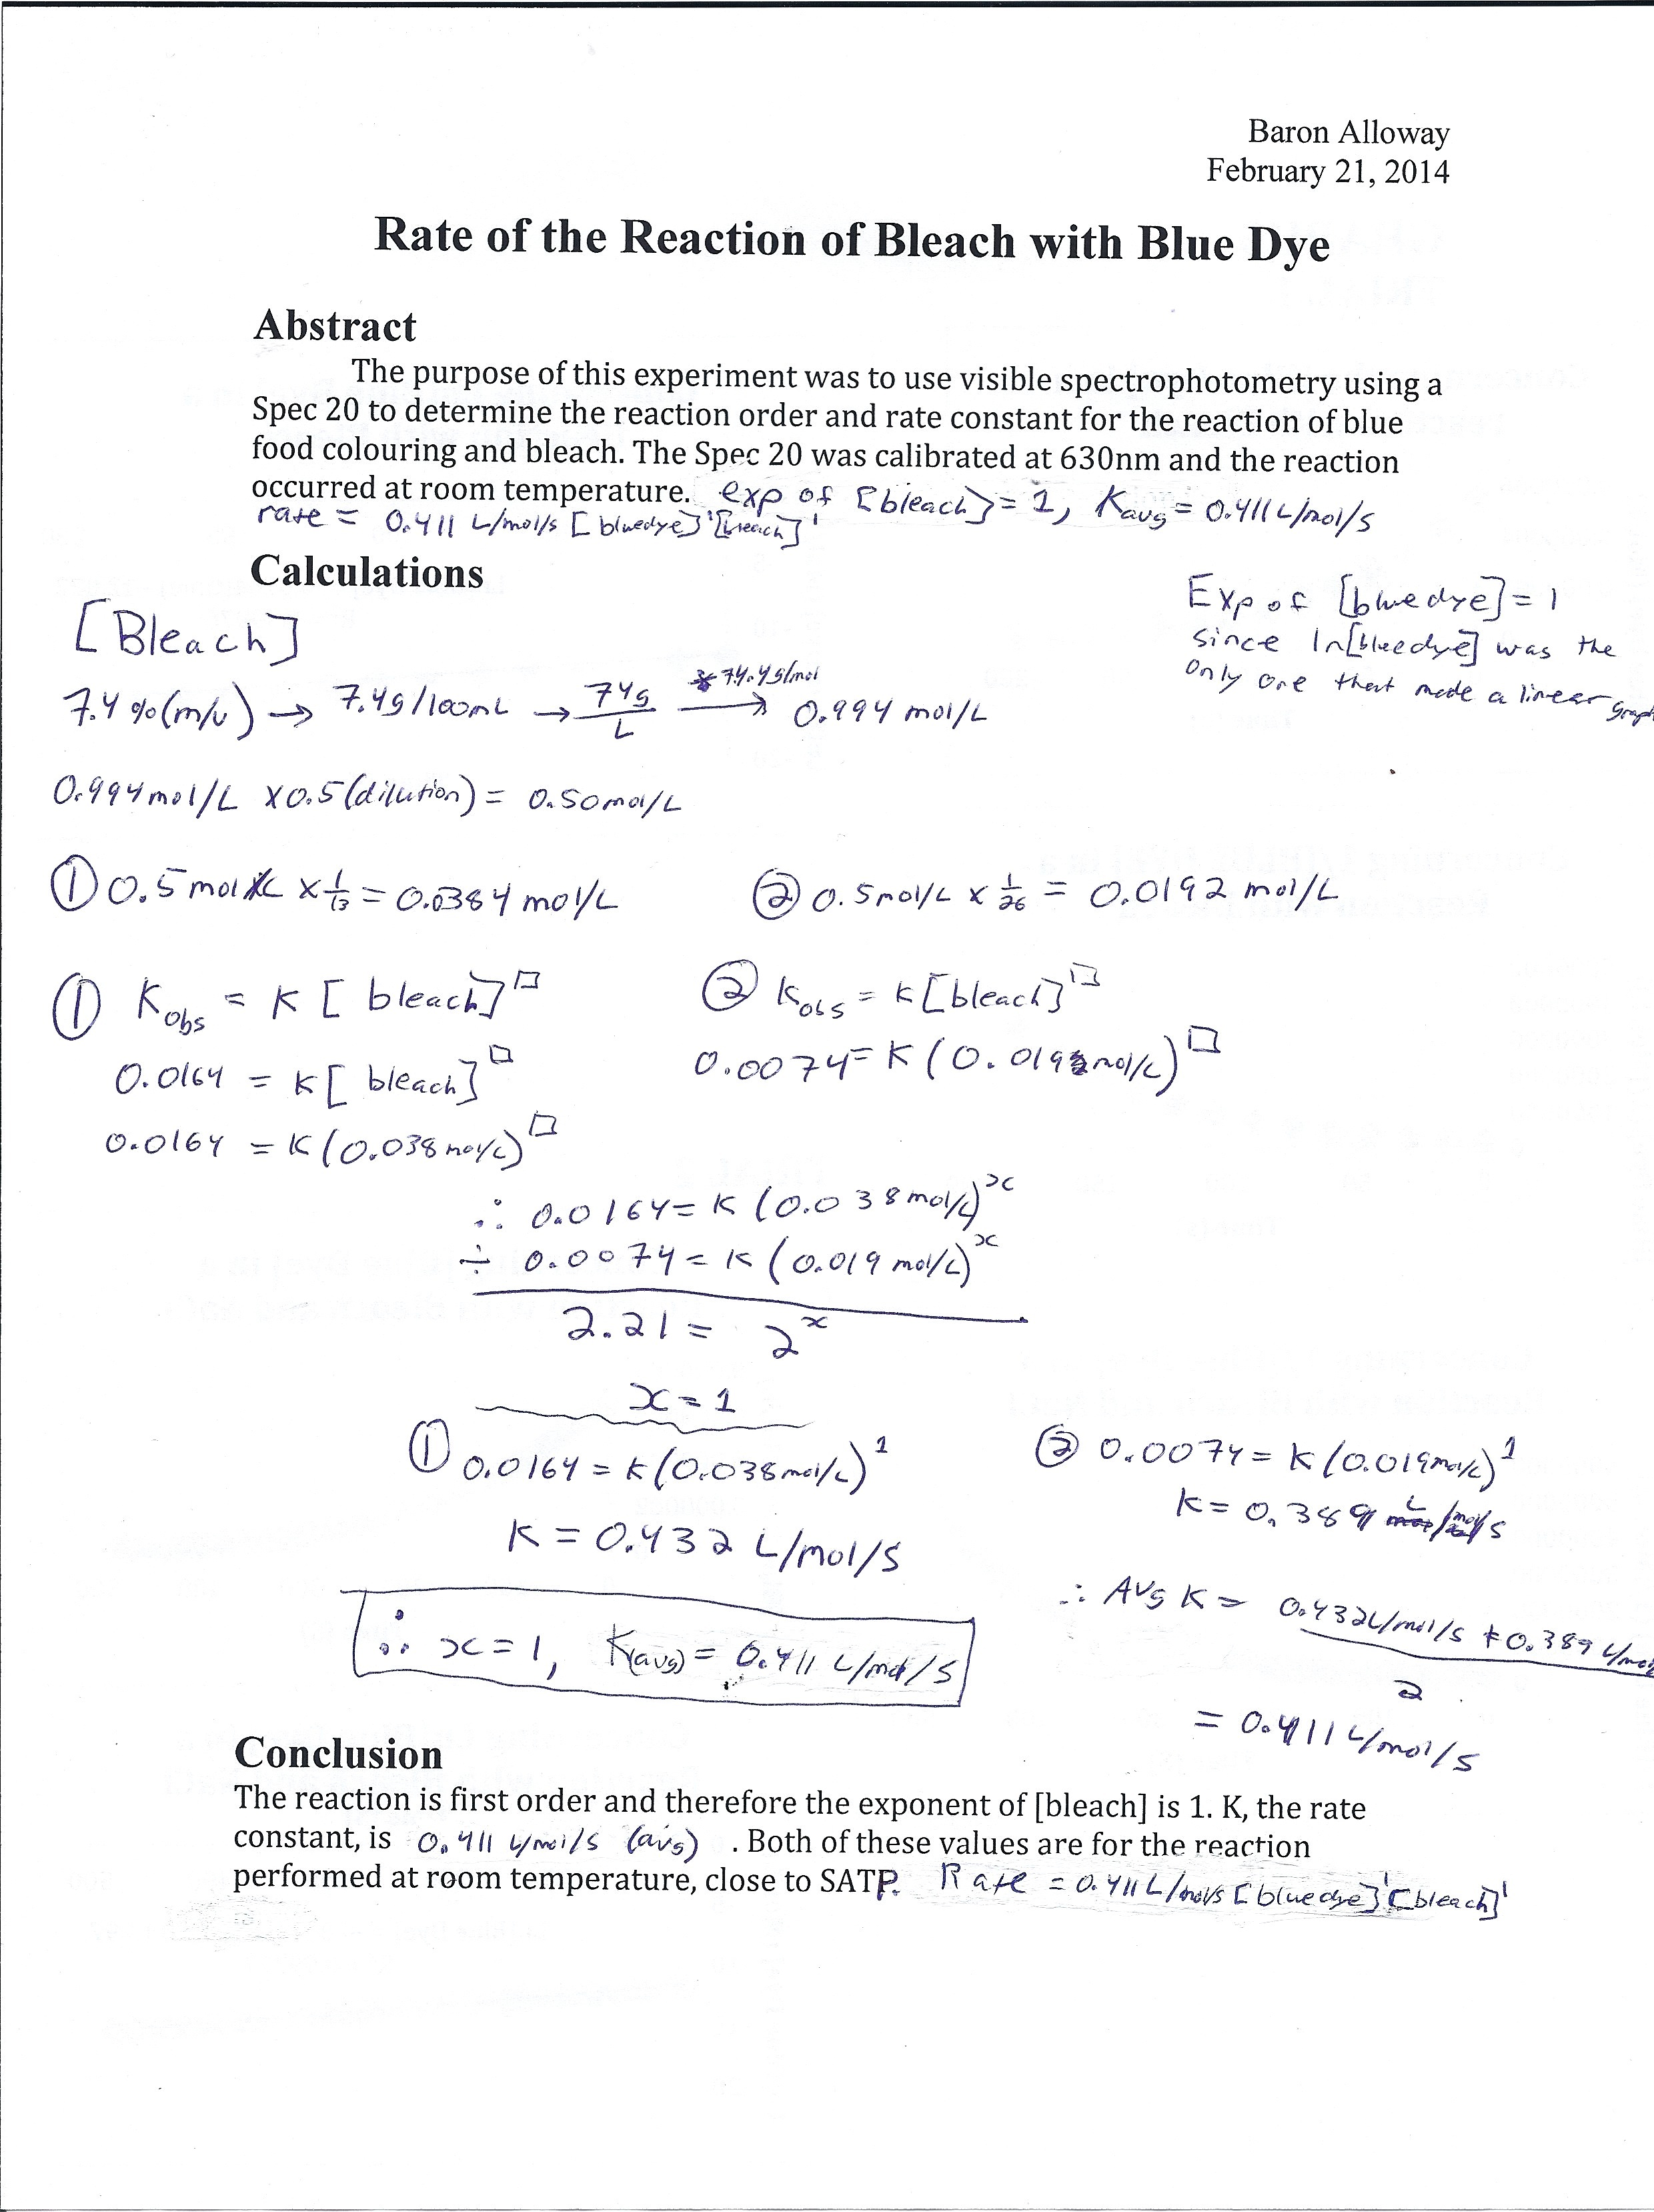 Baron Alloway
February 21, 2014
Rate of the Reaction of Bleach with Blue Dye
Abstract
The purpose of this experiment was to use visible spectrophotometry using a
Spec 20 to determine the reaction order and rate constant for the reaction of blue
food colouring and bleach. The Spec 20 was calibrated at 630nm and the reaction
occurred at room temperature. exp of [bleach] = 1, Kavg = 0.411 L/mol/s
rate = 0.411 L/mol/s [bluedye]¹[bleach]¹
Calculations
Exp of [blue dye] = 1
since ln[bluedye] was the
only one that made a linear graph
[Bleach]
7.4 %(m/v) → 7.4g/100mL → 74g/L → 74.4g/mol 0.994 mol/L
0.994 mol/L x 0.5 (dilution) = 0.50 mol/L
① 0.5 mol/L x 1/13 = 0.0384 mol/L
② 0.5 mol/L x 1/26 = 0.0192 mol/L
① Kobs = K [bleach]^□
② Kobs = K [bleach]^□
0.0164 = K [bleach]^□
0.0074 = K (0.0192 mol/L)^□
0.0164 = K (0.038 mol/L)^□
∴ 0.0164 = K (0.038 mol/L)^x
÷ 0.0074 = K (0.019 mol/L)^x
2.21 = 2^x
x = 1
① 0.0164 = K (0.038 mol/L)¹
② 0.0074 = K (0.019 mol/L)¹
K = 0.432 L/mol/s
K = 0.389 L/mol/s
∴ Avg K = 0.432 L/mol/s + 0.389 L/mol
2
= 0.411 L/mol/s
∴ x = 1, K(avg) = 0.411 L/mol/s
Conclusion
The reaction is first order and therefore the exponent of [bleach] is 1. K, the rate
constant, is 0.411 L/mol/s (avg) . Both of these values are for the reaction
performed at room temperature, close to SATP. Rate = 0.411 L/mol/s [blue dye]¹[bleach]¹